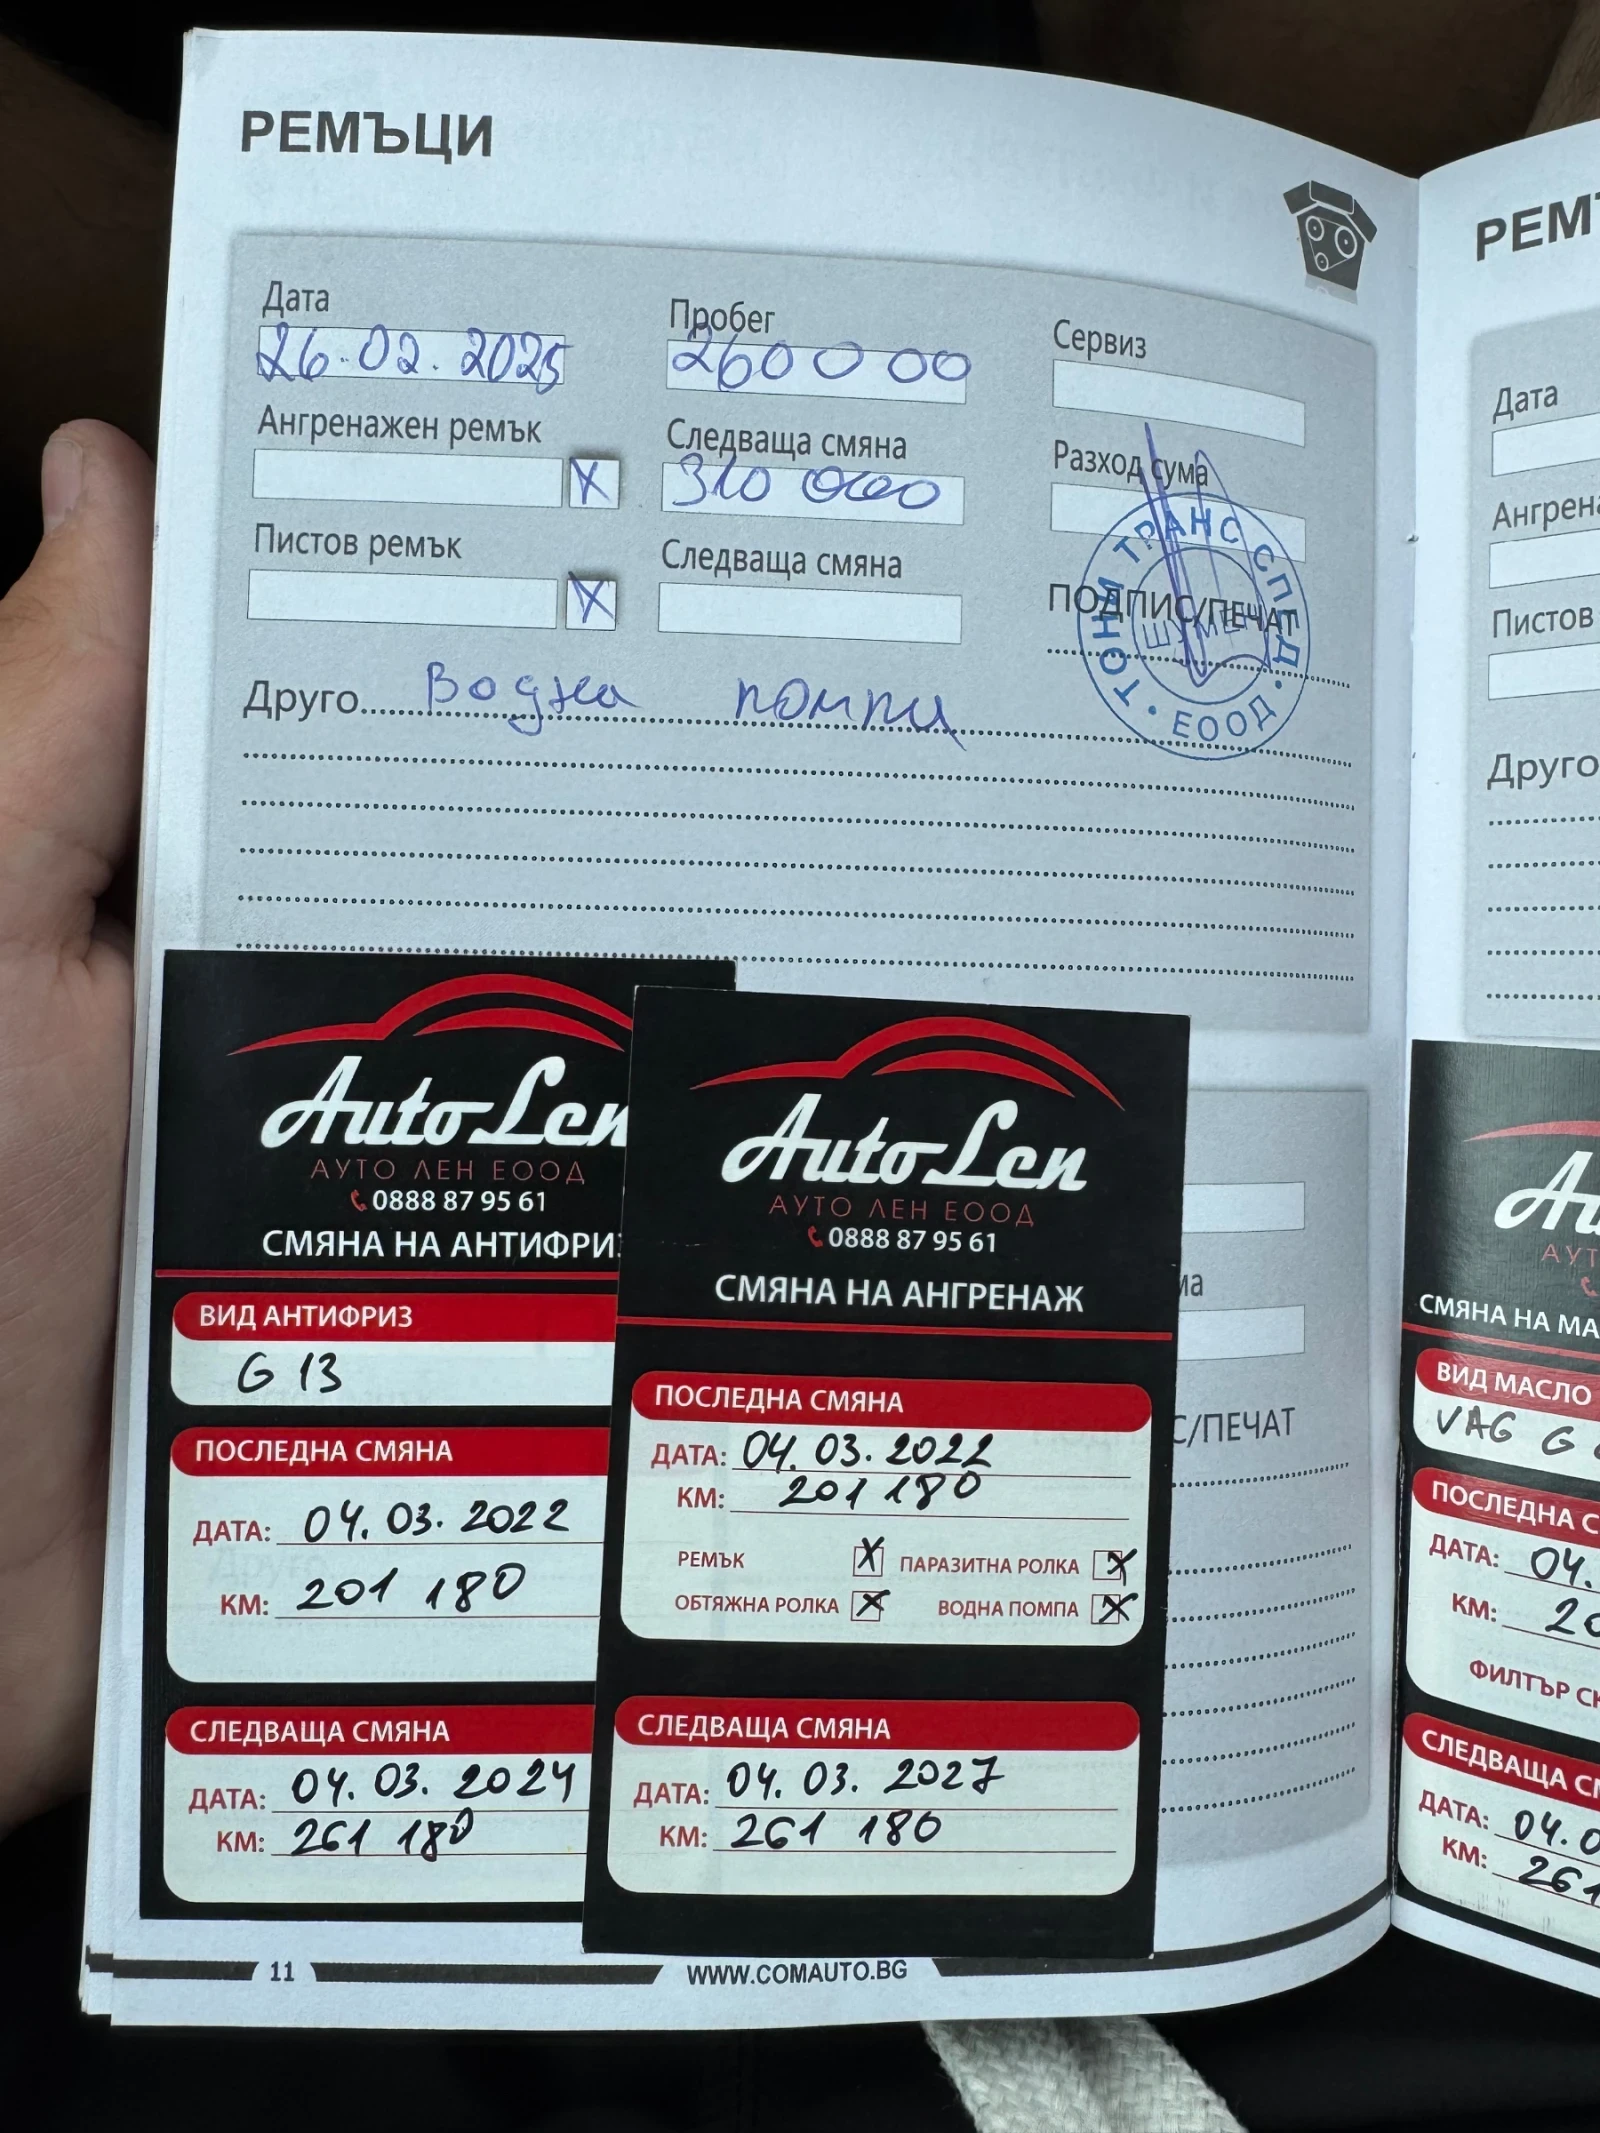 РЕМЪЦИ
Дата
26.02.2025
Пробег
260 000
Сервиз
Ангренажен ремък
X
Следваща смяна
310 000
Разход сума
Пистов ремък
X
Следваща смяна
ПОДПИС/ПЕЧАТ
ТОНИ ТРАНС СПЕД • ЕООД •
ШУМЕН
Друго
Водна помпа
AutoLen
АУТО ЛЕН ЕООД
0888 87 95 61
СМЯНА НА АНТИФРИ
ВИД АНТИФРИЗ
G 13
ПОСЛЕДНА СМЯНА
ДАТА: 04. 03. 2022
КМ: 201 180
СЛЕДВАЩА СМЯНА
ДАТА: 04. 03. 2024
КМ: 261 180
AutoLen
АУТО ЛЕН ЕООД
0888 87 95 61
СМЯНА НА АНГРЕНАЖ
ПОСЛЕДНА СМЯНА
ДАТА: 04. 03. 2022
КМ: 201 180
РЕМЪК X ПАРАЗИТНА РОЛКА X
ОБТЯЖНА РОЛКА X ВОДНА ПОМПА X
СЛЕДВАЩА СМЯНА
ДАТА: 04. 03. 2027
КМ: 261 180
С/ПЕЧАТ
11
WWW.COMAUTO.BG
РЕМ
Дата
Ангрен
Пистов
Друго
АУТ
СМЯНА НА МА
ВИД МАСЛО
VAG G
ПОСЛЕДНА С
ДАТА: 04.
КМ: 20
ФИЛТЪР СК
СЛЕДВАЩА С
ДАТА: 04. 0
КМ: 261